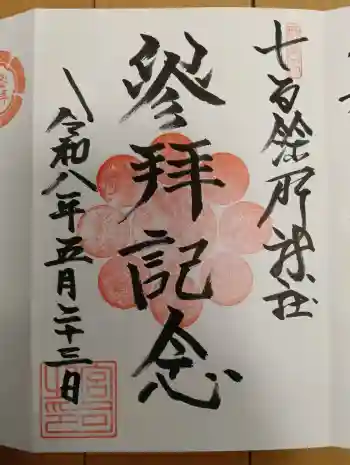 七百餘所神社
參拜記念
令和八年五月二十三日